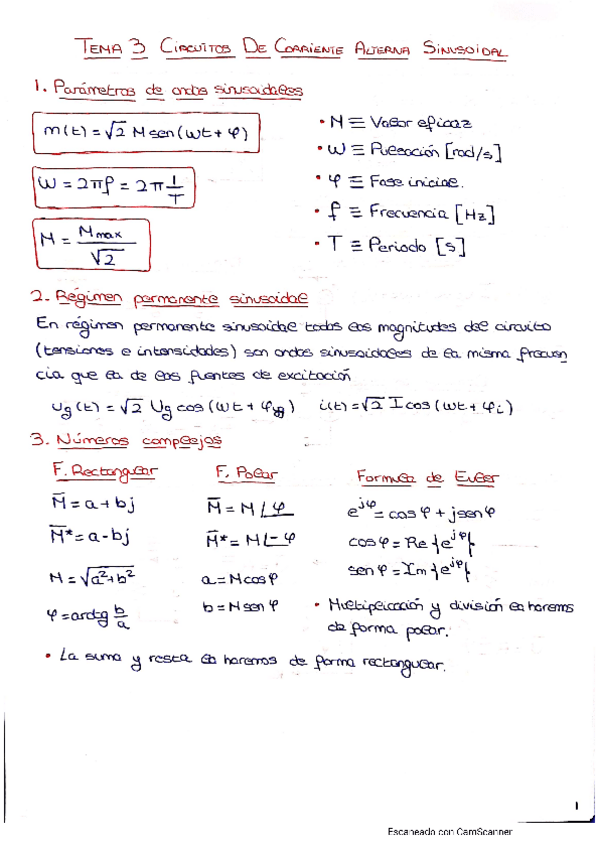 TEMA 3 CIRCUITOS DE CORRIENTE ALTERNA SINUSOIDAL
1. Parámetros de ondas sinusoidales
m(t) = √2 M sen(ωt + φ)
ω = 2πf = 2π 1/T
M = Mmax/√2
• M ≡ Valor eficaz
• ω ≡ Pulsación [rad/s]
• φ ≡ Fase inicial.
• f ≡ Frecuencia [Hz]
• T ≡ Periodo [s]
2. Régimen permanente sinusoidal
En régimen permanente sinusoidal todas las magnitudes del circuito
(tensiones e intensidades) son ondas sinusoidales de la misma frecuen
cia que la de las fuentes de excitación
ug(t) = √2 Ug cos(ωt + φug) i(t) = √2 I cos(ωt + φi)
3. Números complejos
F. Rectangular
M̅ = a + bj
M̅* = a - bj
M = √a²+b²
φ = arctg b/a
F. Polar
M̅ = M∠φ
M̅* = M∠-φ
a = M cos φ
b = M sen φ
Formula de Euler
e^jφ = cos φ + j sen φ
cos φ = Re {e^jφ}
sen φ = Im {e^jφ}
• Multiplicación y división la haremos
de forma polar.
• La suma y resta la haremos de forma rectangular.
1
Escaneado con CamScanner